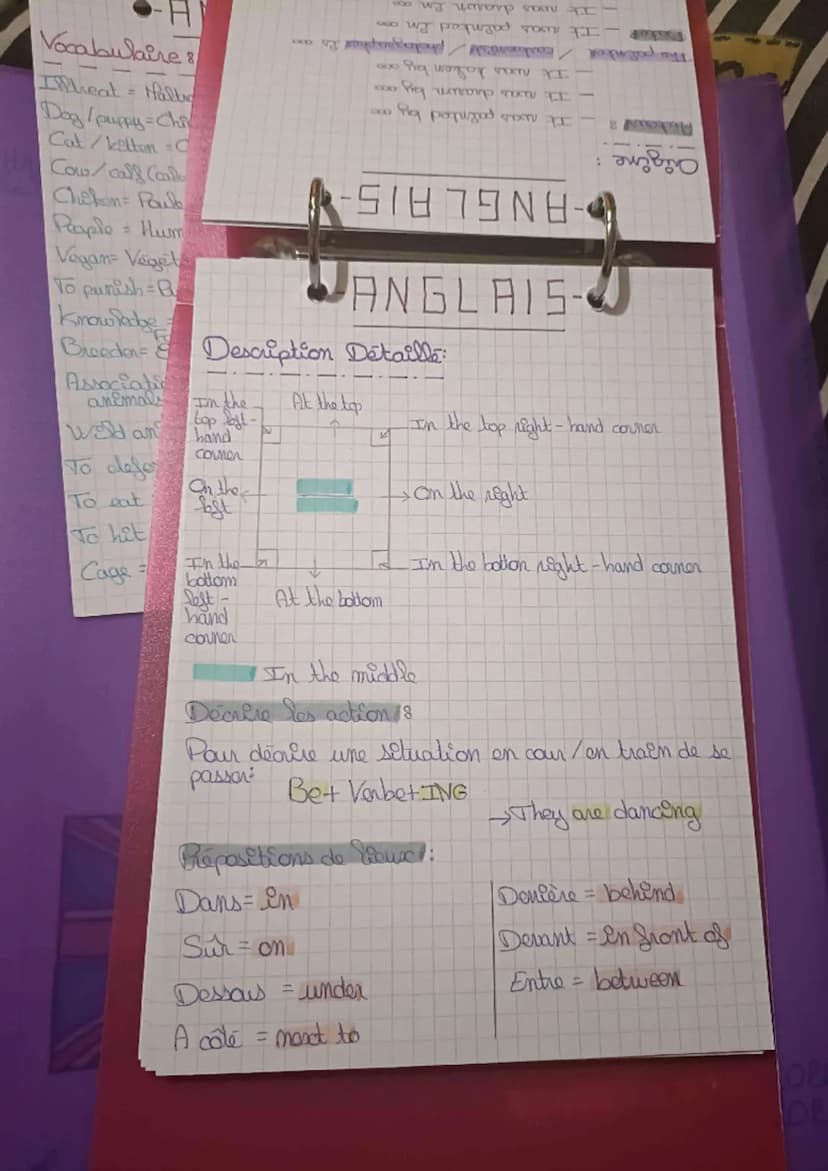 Vocabulaire :
Dog/puppy=
Cat/
Cow/calf
People = Hum
Vegan= Végét
To punish=
Knowledge =
Breeder=
Associati
animal
Wild an
To defen
To eat
To hit
Cage =
- It was drawn in
- It was painted in
- It was taken by
- It was drawn by
- It was painted by
Origine :
-ANGLAIS-
-ANGLAIS-
Description Détaillé:
In the top left-hand corner
At the top
In the top right-hand corner
On the left
On the right
In the bottom left-hand corner
At the bottom
In the botton right-hand corner
In the middle
Décrire les action :
Pour décrire une situation en cour/en train de se
passer:
Be+ Verbe+ING
→They are dancing
Prépositions de lieux :
Dans= in
Sûr = on
Dessous = under
A côté = next to
Derrière = behind
Devant = in front of
Entre = between